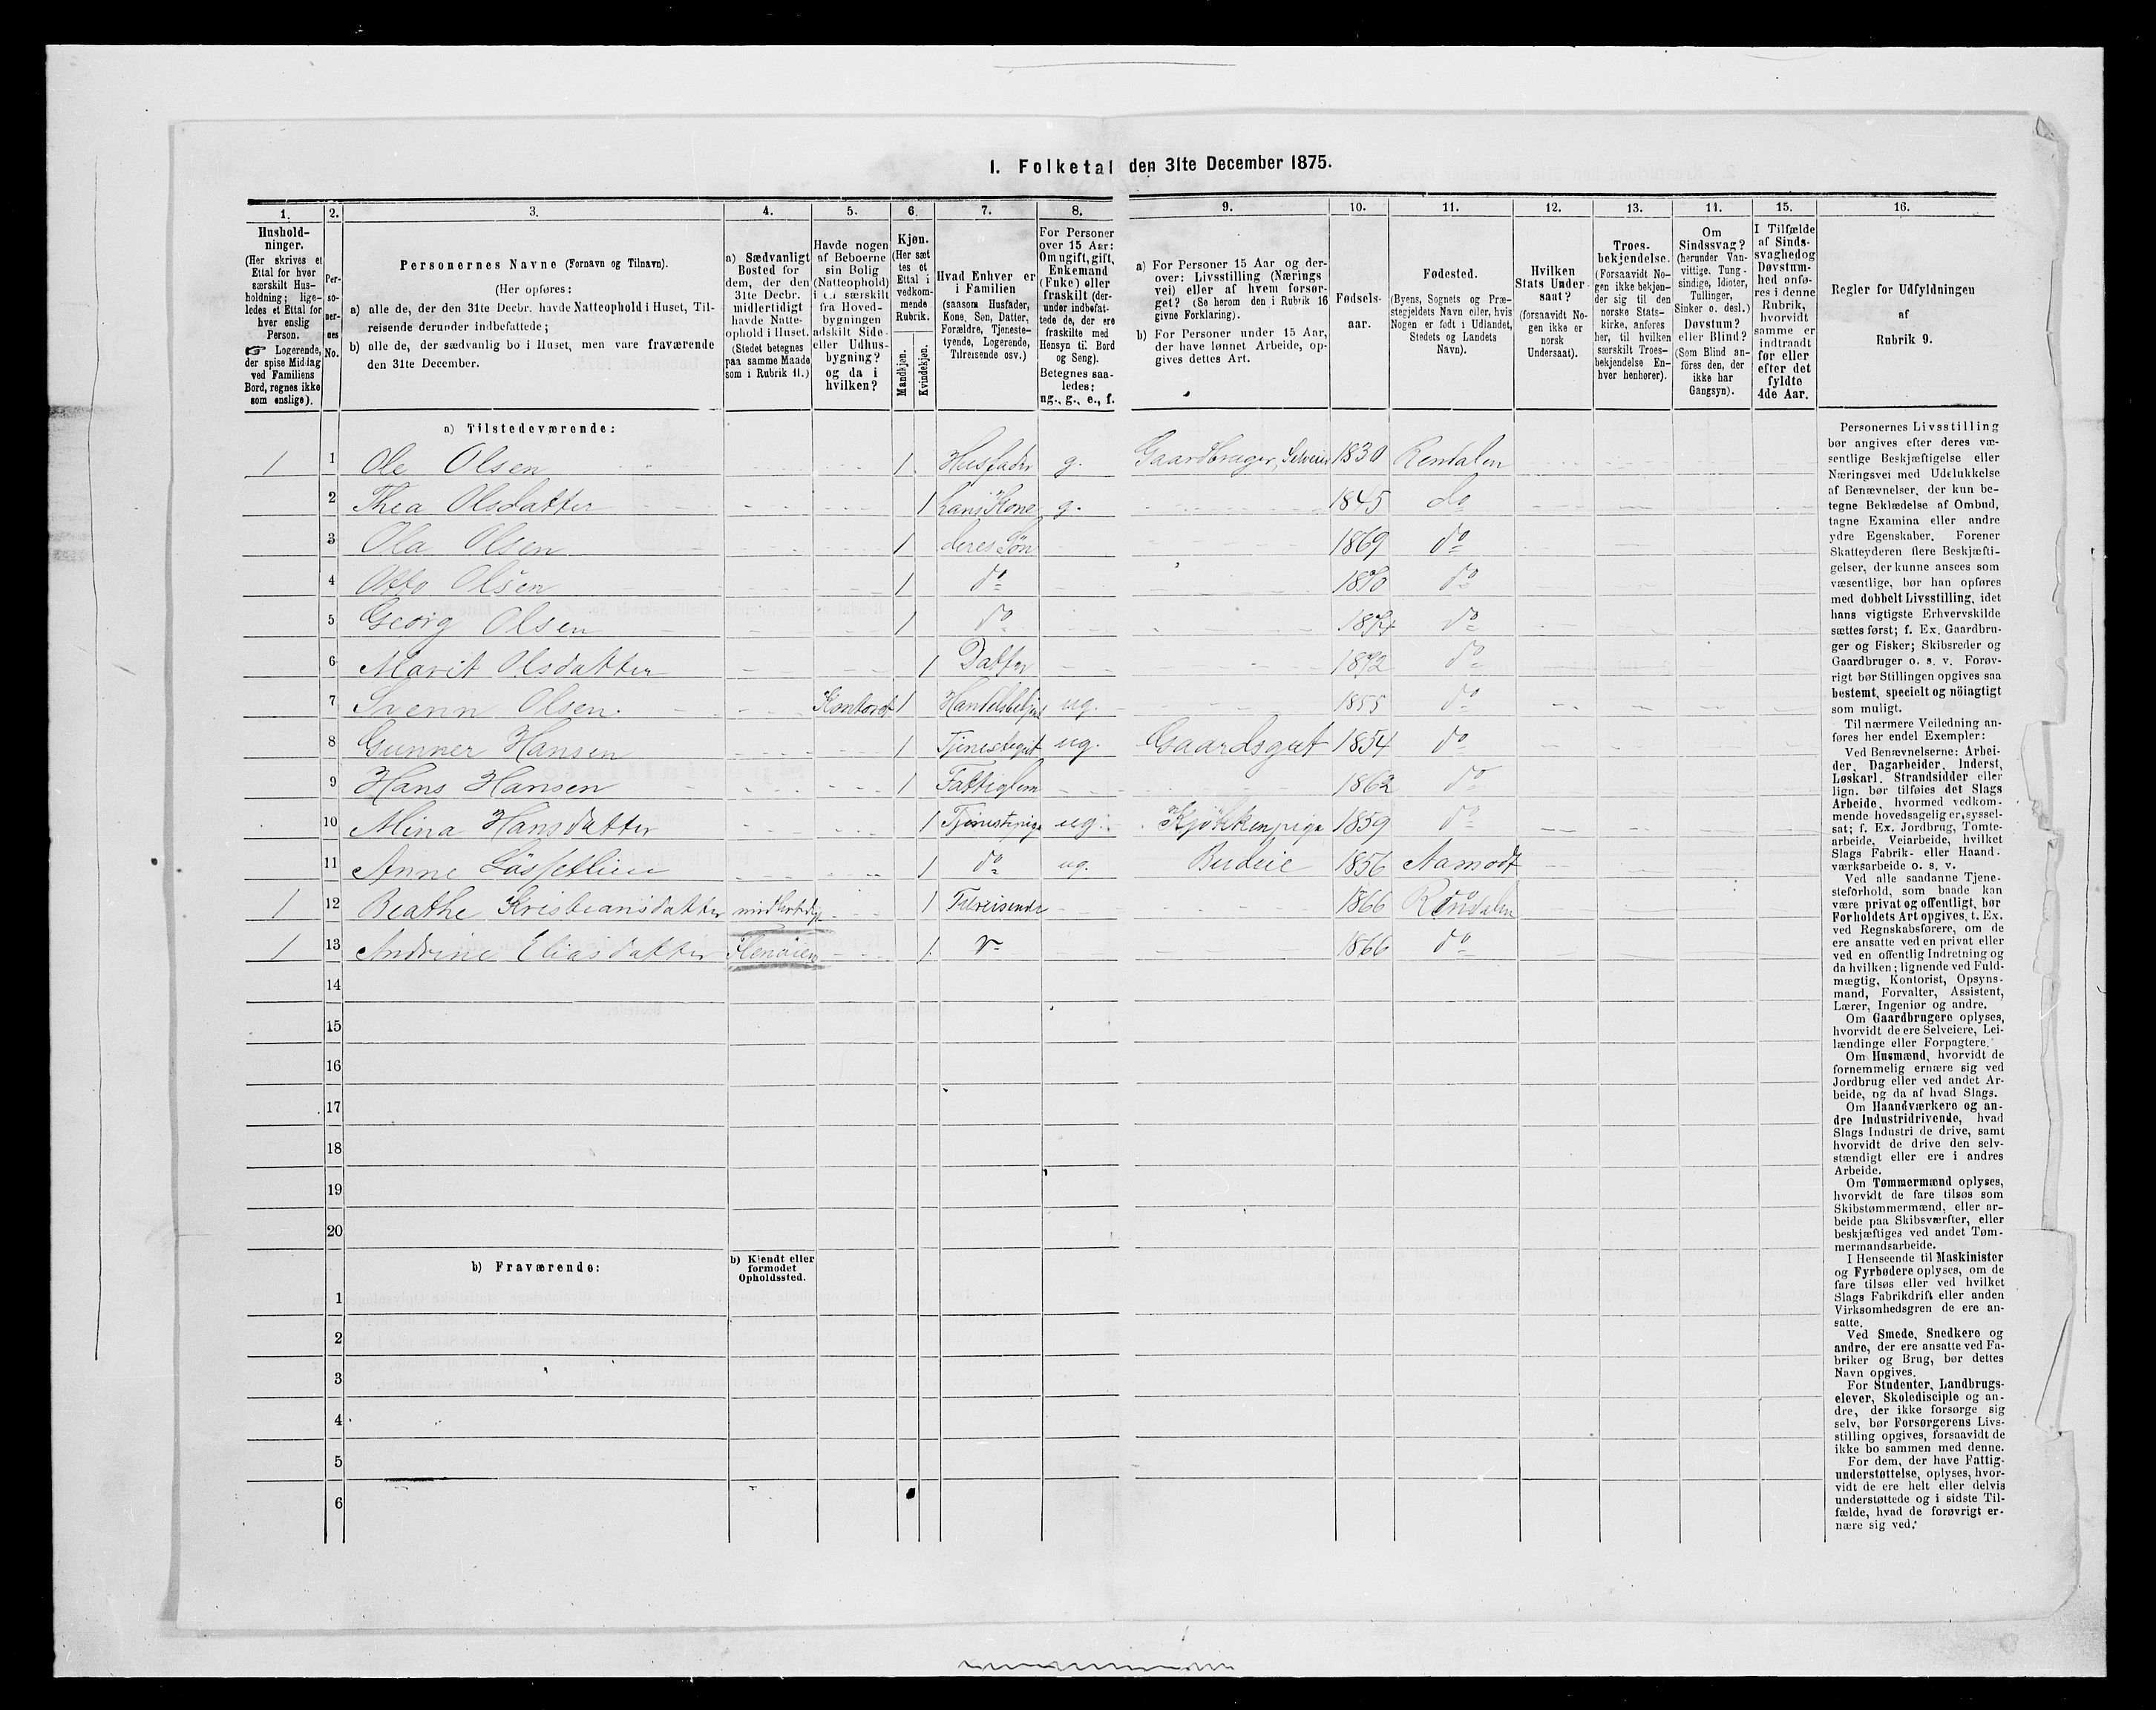 I. Folketal den 31te December 1875.
1. 2. 3. 4. 5. 6. 7. 8. 9. 10. 11. 12. 13. 14. 15. 16.
Hushold-
ninger.
(Her skrives et
Ettal for hver
særskilt Hus-
holdning; lige-
ledes et Ettal for
hver enslig
Person.
☞ Logerende,
der spise Middag
ved Familiens
Bord, regnes ikke
som enslige).
Per-
so-
ner-
nes
No.
Personernes Navne (Fornavn og Tilnavn).
(Her opføres:
a) alle de, der den 31te Decbr. havde Natteophold i Huset, Til-
reisende derunder indbefattede;
b) alle de, der sædvanlig bo i Huset, men vare fraværende
den 31te December.
a) Sædvanligt
Bosted for
dem, der den
31te Decbr.
midlertidigt
havde Natte-
ophold i Huset.
(Stedet betegnes
paa samme Maade
som i Rubrik 11.)
Havde nogen
af Beboerne
sin Bolig
(Natteophold)
i en særskilt
fra Hoved-
bygningen
adskilt Side
eller Udhus-
bygning?
og da i
hvilken?
Kjøn.
(Her sæt
tes et
Ettal i
vedkom-
mende
Rubrik.
Mandkjøn.
Kvindekjøn.
Hvad Enhver er
i Familien
(saasom Husfader,
Kone, Søn, Datter,
Forældre, Tjeneste-
tyende, Logerende,
Tilreisende osv.)
For Personer
over 15 Aar:
Om ugift, gift,
Enkemand
(Enke) eller
fraskilt (der-
under indbefat-
tede de, der ere
fraskilte med
Hensyn til Bord
og Seng).
Betegnes saa-
ledes:
ug., g., e., f.
a) For Personer 15 Aar og der-
over: Livsstilling (Nærings
vei) eller af hvem forsør-
get? (Se herom den i Rubrik 16
givne Forklaring).
b) For Personer under 15 Aar,
der have lønnet Arbeide, op-
gives dettes Art.
Fødsels-
aar.
Fødested.
(Byens, Sognets og Præ-
stegjeldets Navn eller, hvis
Nogen er født i Udlandet,
Stedets og Landets
Navn).
Hvilken
Stats Under
saat?
(forsaavidt No-
gen ikke er
norsk
Undersaat).
Troes-
bekjendelse.
(Forsaavidt No-
gen ikke bekjen-
der sig til den
norske Stats-
kirke, anføres
her, til hvilken
særskilt Troes-
bekjendelse En-
hver henhører).
Om
Sindssvag?
(herunder Van-
vittige, Tung-
sindige, Idioter,
Tullinger,
Sinker o. desl.)
Døvstum?
eller Blind?
(Som Blind an-
föres den, der
ikke har
Gangsyn).
I Tilfælde
af Sinds-
svaghed og
Døvstum-
hed anfø-
res i denne
Rubrik,
hvorvidt
samme er
indtraadt
før eller
efter det
fyldte
4de Aar.
Regler for Udfyldningen
af
Rubrik 9.
a) Tilstedeværende:
1 1 Ole Olsen 1 Husfader g. Gaardbruger, Selveier 1830 Rendalen
2 Thea Olsdatter 1 hans Kone g. 1845 do
3 Ola Olsen 1 deres Søn 1869 do
4 Otto Olsen 1 do 1870 do
5 Georg Olsen 1 do 1874 do
6 Marit Olsdatter 1 Datter 1872 do
7 Svenn Olsen 1 ug. 1855 do
8 Gunner Hansen 1 Tjenestegut ug. Gaardsgut 1854 do
9 Hans Hansen 1 Fattiglem 1862 do
10 Mina Hansdatter 1 Tjenestepige ug. Kjøkkenpige 1859 do
11 Anne 1 do ug. Budeie 1856 Aamodt
1 12 Beathe Kristiansdatter midlertidigt 1 Tilreisende 1866 Rendalen
1 13 Andrine Eliasdatter 1 1866 do
14
15
16
17
18
19
20
b) Fraværende:
b) Kjendt eller
formodet
Opholdssted.
1
2
3
4
5
6
Personernes Livsstilling
bør angives efter deres væ-
sentlige Beskjæftigelse eller
Næringsvei med Udelukkelse
af Benævnelser, der kun be-
tegne Beklædelse af Ombud,
tagne Examina eller andre
ydre Egenskaber. Forener
Skatteyderen flere Beskjæfti-
gelser, der kunne ansees som
væsentlige, bør han opføres
med dobbelt Livsstilling, idet
hans vigtigste Erhvervskilde
sættes først; f. Ex. Gaardbru-
ger og Fisker; Skibsreder og
Gaardbruger o. s. v. Forøv-
rigt bør Stillingen opgives saa
bestemt, specielt og nöiagtigt
som muligt.
Til nærmere Veiledning an-
føres her endel Exempler:
Ved Benævnelserne: Arbei-
der, Dagarbeider, Inderst,
Løskarl, Strandsidder eller
lign. bør tilføies det Slags
Arbeide, hvormed vedkom-
mende hovedsagelig er syssel-
sat; f. Ex. Jordbrug, Tomte-
arbeide, Veiarbeide, hvilket
Slags Fabrik- eller Haand-
værksarbeide o. s. v.
Ved alle saadanne Tjene-
steforhold, som baade kan
være privat og offentligt, bør
Forholdets Art opgives, t. Ex.
ved Regnskabsførere, om de
ere ansatte ved en privat eller
ved en offentlig Indretning og
da hvilken; lignende ved Fuld-
mægtig, Kontorist, Opsyns-
mand, Forvalter, Assistent,
Lærer, Ingeniør og andre.
Om Gaardbrugere oplyses,
hvorvidt de ere Selveiere, Lei-
lændinge eller Forpagtere.
Om Husmænd, hvorvidt de
fornemmelig ernære sig ved
Jordbrug eller ved andet Ar-
beide, og da af hvad Slags.
Om Haandværkere og an-
dre Industridrivende, hvad
Slags Industri de drive, samt
hvorvidt de drive den selv-
stændigt eller ere i andres
Arbeide.
Om Tømmermænd oplyses,
hvorvidt de fare tilsøs som
Skibstømmermænd, eller ar-
beide paa Skibsværfter, eller
beskjæftiges ved andet Tøm-
mermandsarbeide.
I Henseende til Maskinister
og Fyrbødere oplyses, om de
fare tilsøs eller ved hvilket
Slags Fabrikdrift eller anden
Virksomhedsgren de ere an-
satte.
Ved Smede, Snedkere og
andre, der ere ansatte ved Fa-
briker og Brug, bør dettes
Navn opgives.
For Studenter, Landbrugs-
elever, Skoledisciple og an-
dre, der ikke forsørge sig
selv, bør Forsørgerens Livs-
stilling opgives, forsaavidt de
ikke bo sammen med denne.
For dem, der have Fattig-
understøttelse, oplyses, hvor-
vidt de ere helt eller delvis
understøttede og i sidste Til-
fælde, hvad de forøvrigt er-
nære sig ved.